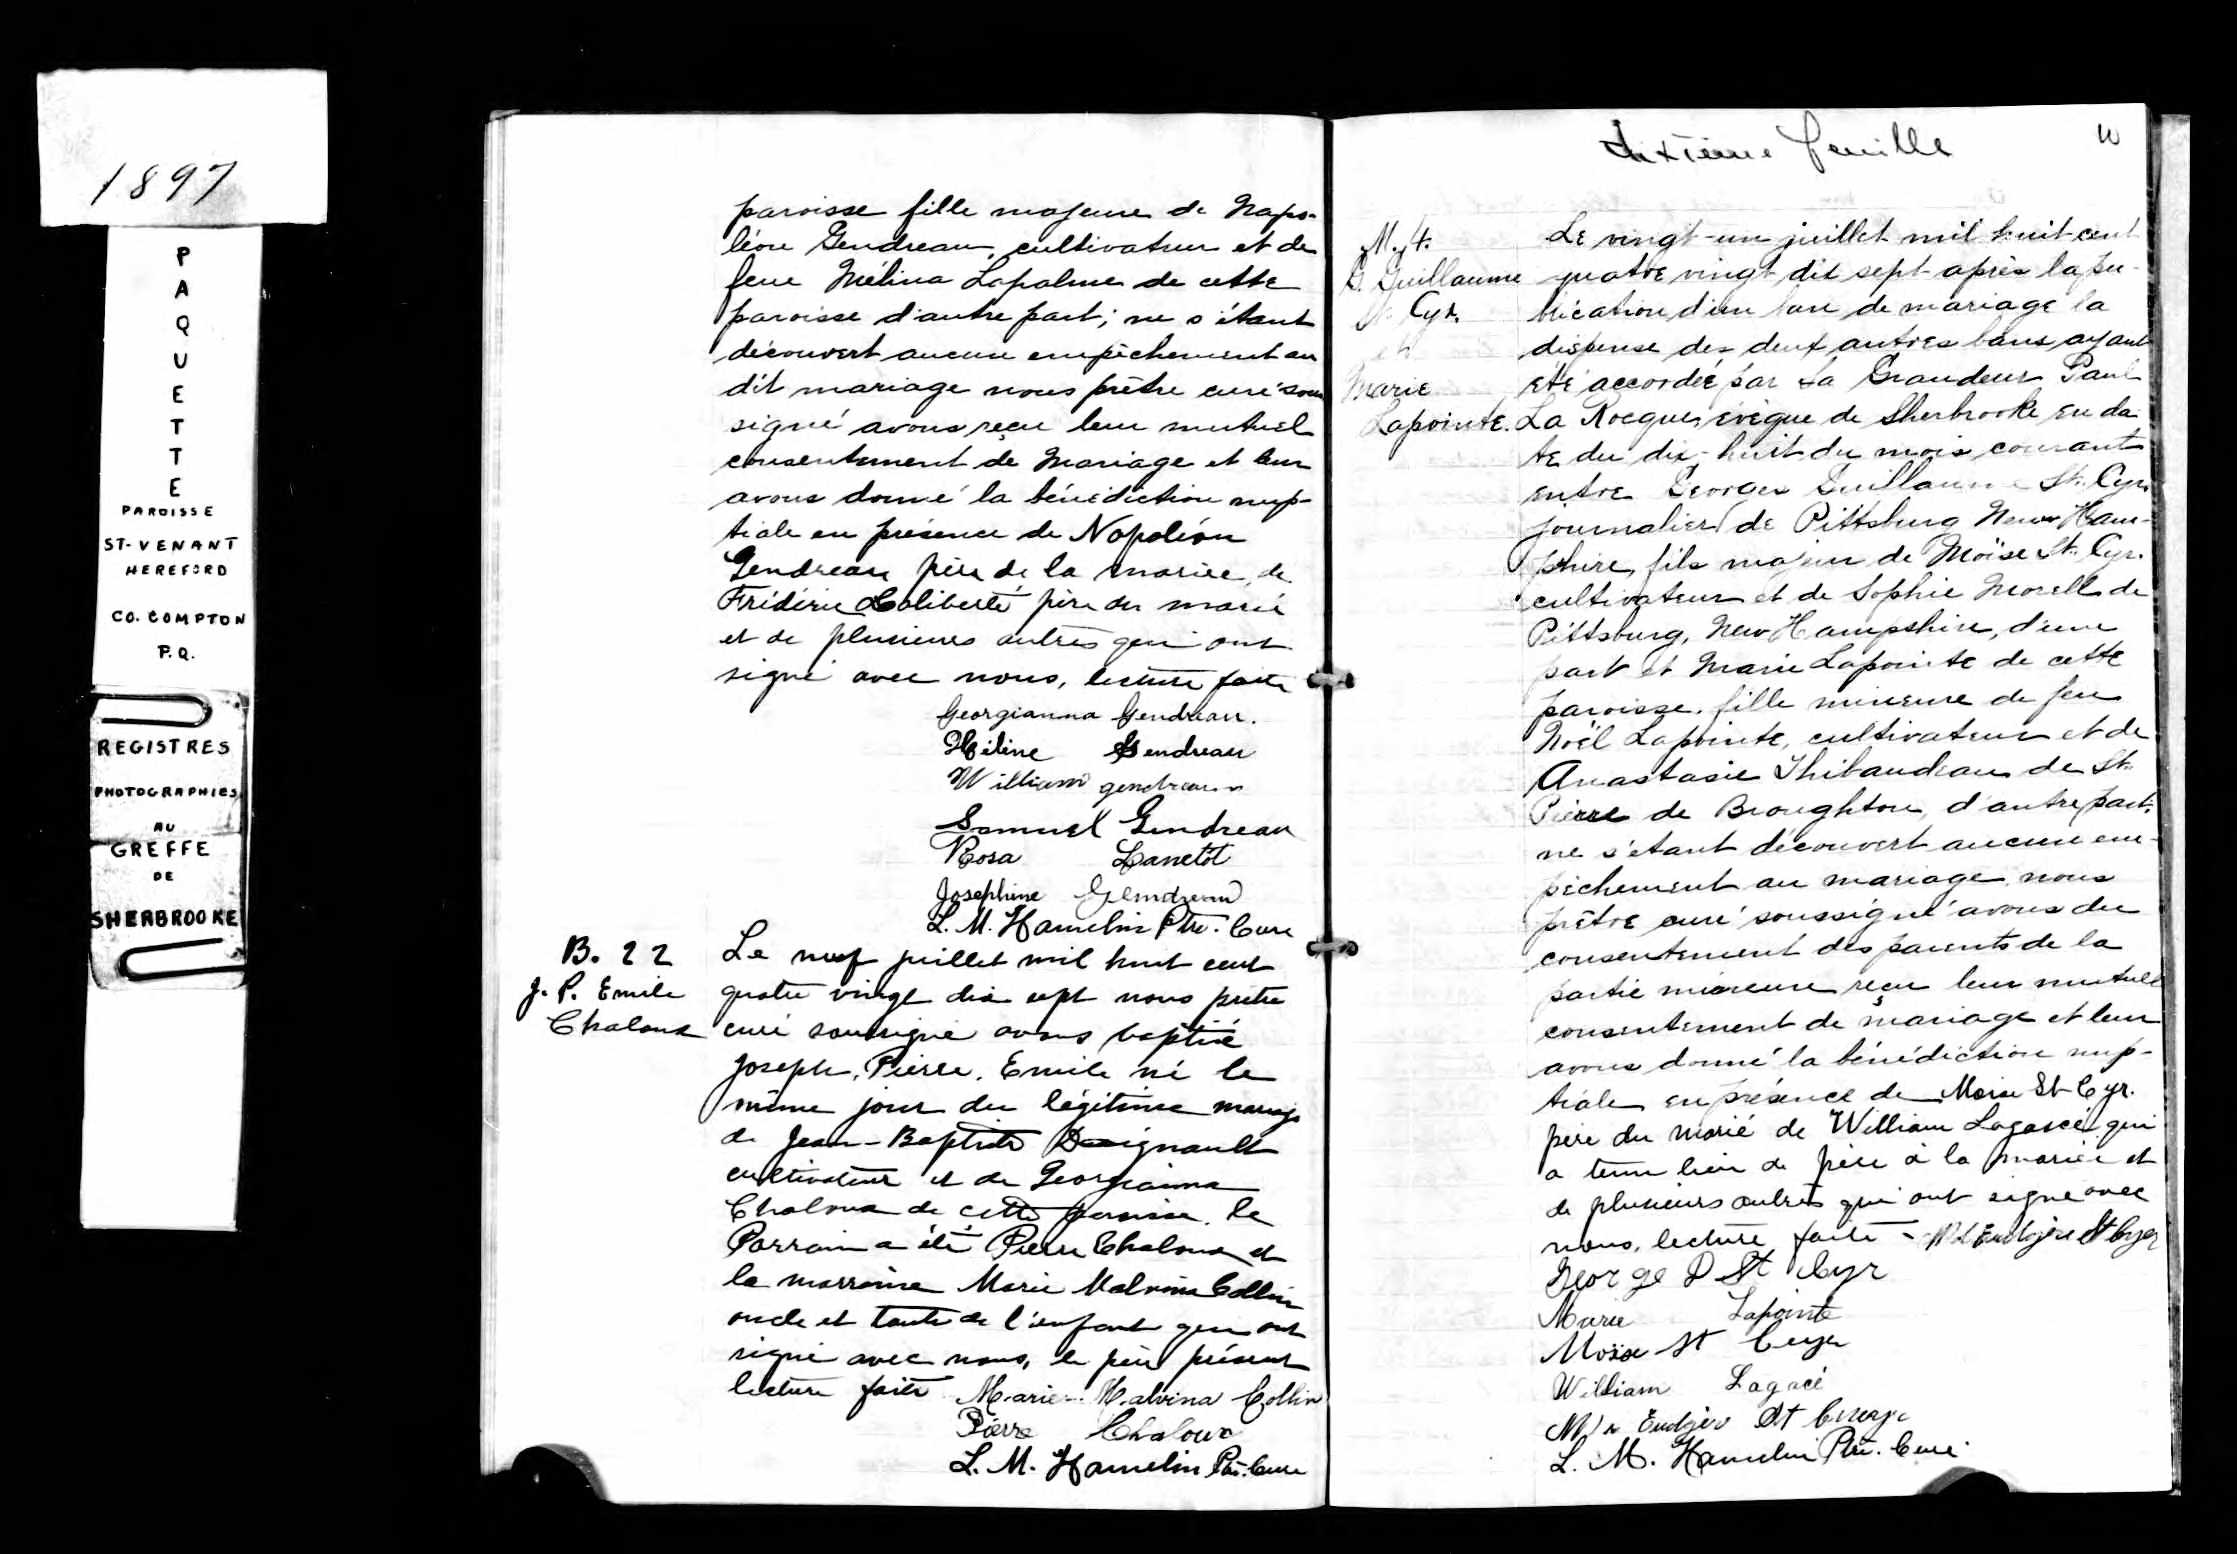 1897
PAQUETTE
PAROISSE
ST-VENANT
HEREFORD
CO. COMPTON
P.Q.
REGISTRES
PHOTOGRAPHIES
AU
GREFFE
DE
SHERBROOKE
paroisse fille majeure de Napo-
léon Gendreau, cultivateur et de
feue Mélina Lapalme de cette
paroisse d'autre part; ne s'étant
découvert aucun empêchement au
dit mariage nous prêtre curé sous
signé avons reçu leur mutuel
consentement de Mariage et leur
avons donné la bénédiction nup-
tiale en présence de Napoléon
Gendreau père de la mariée, de
Frédéric Laliberté père du marié
et de plusieurs autres qui ont
signé avec nous, lecture faite
Georgianna Gendreau.
Héline Gendreau
William gendreau
Samuel Gendreau
Rosa Lanctôt
Josephine Gendreau
L. M. Hamelin Ptre. Cure
B. 22
J. P. Emile
Chaloux
Le neuf juillet mil huit cent
quatre vingt dix sept nous prêtre
curé soussigné avons baptisé
Joseph, Pierre, Emile né le
même jour du légitime mariage
de Jean-Baptiste Daignault
cultivateur et de Georgianna
Chaloux de cette paroisse. le
Parrain a été Pierre Chaloux et
la marraine Marie Malvina Collin
oncle et tante de l'enfant qui ont
signé avec nous, le père présent
lecture faite Marie Malvina Collin
Pierre Chaloux
L. M. Hamelin Ptr. Cure
dixième feuille
10
M. 4.
G. Guillaume
St. Cyr.
et
Marie
Lapointe.
Le vingt-un juillet mil huit cent
quatre vingt dit sept après la pu-
blication d'un ban de mariage la
dispense des deux autres bans ayant
été accordée par Sa Grandeur Paul
La Rocque, évêque de Sherbrooke en da
te du dix-huit du mois courant
entre Georges Guillaume St. Cyr.
journalier de Pittsburg New Ham-
pshire, fils majeur de Moïse St. Cyr.
cultivateur et de Sophie Morell de
Pittsburg, New Hampshire, d'une
part et Marie Lapointe de cette
paroisse. fille mineure de feu
Noël Lapointe, cultivateur et de
Anastasie Thibaudeau de St.
Pierre de Broughton, d'autre part.
ne s'étant découvert aucun em-
pêchement au mariage, nous
prêtre curé soussigné avons du
consentement des parents de la
partie mineure reçu leur mutuel
consentement de mariage et leur
avons donné la bénédiction nup-
tiale en présence de Moise St Cyr.
père du marié de William Lagassé qui
a tenu lieu de père à la mariée et
de plusieurs autres qui ont signé avec
nous, lecture faite -
George D St Cyr
Marie Lapointe
Moïse St Cuyr
William Lagacé
L. M. Hamelin Ptr. Curé